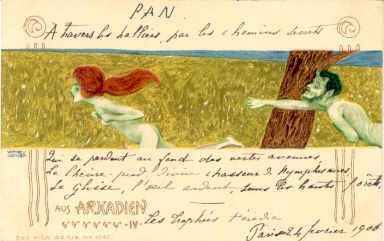 PAN
A travers les halliers, par les chemins secrets
Qui se perdent au fond des vertes avenues,
Le chèvre-pied, divin chasseur de Nymphes nues,
Se glisse, l'œil ardent, sous les hautes forêts
AUS ARKADIEN
IV.
Les Trophées Hérédia
Paris 24 février 1900